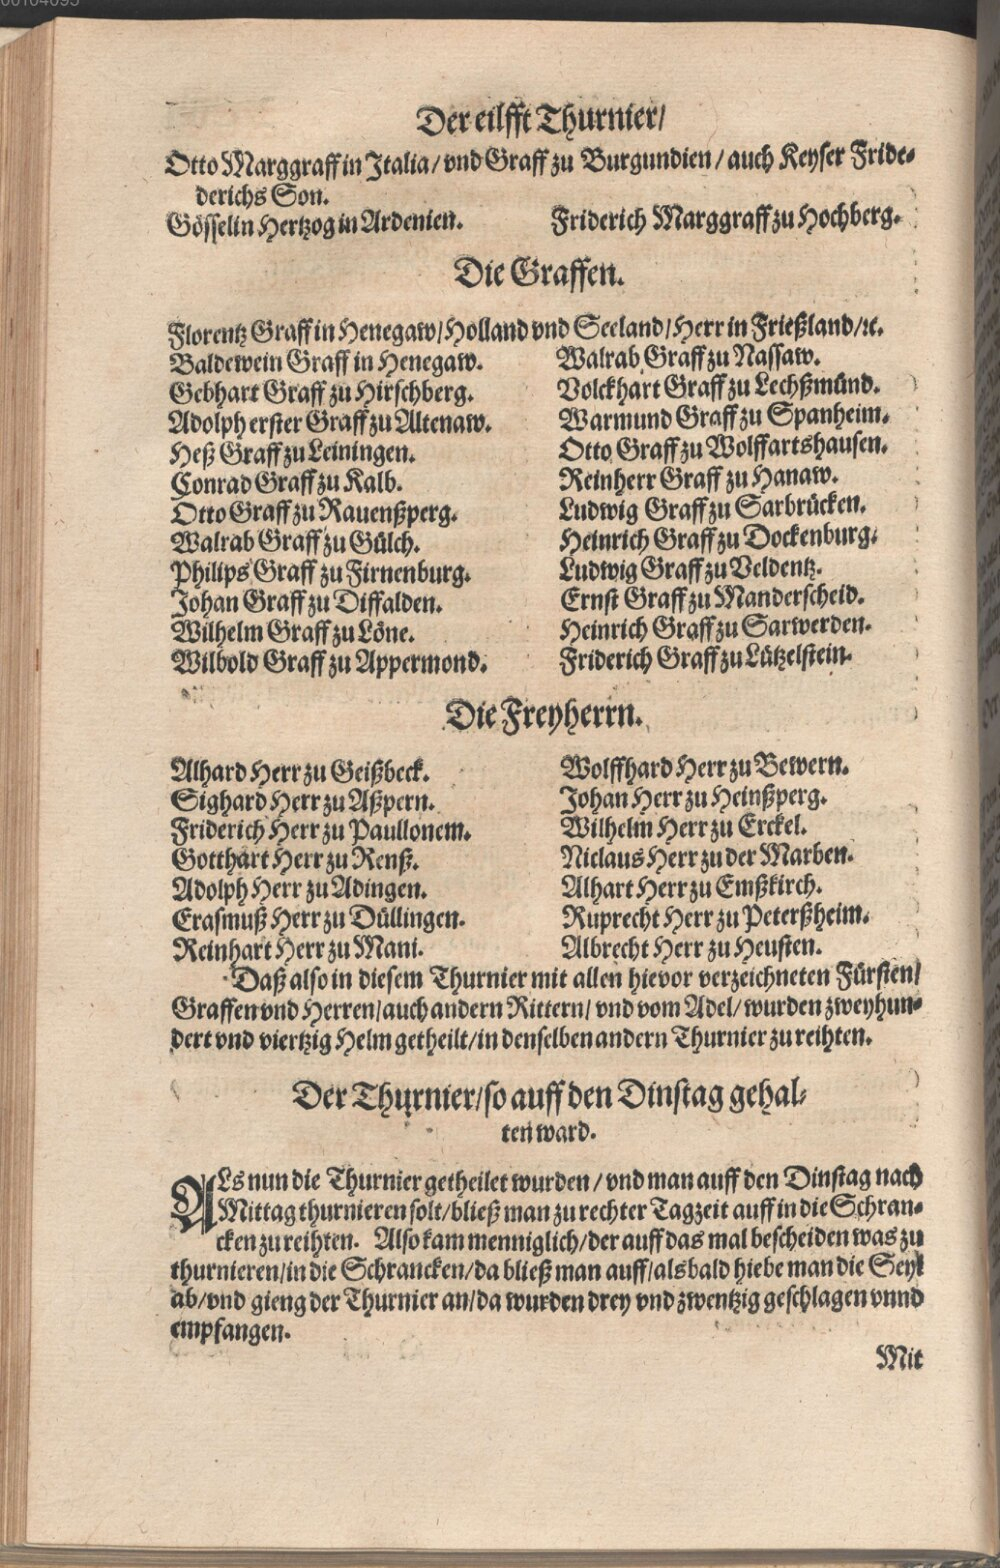 00104095
Der eilfft Thurnier/
Otto Marggraff in Italia/ vnd Graff zu Burgundien/ auch Keyser Fride-
derichs Son.
Gösselin Hertzog in Ardenien.
Friderich Marggraff zu Hochberg.
Die Graffen.
Florentz Graff in Henegaw/ Holland vnd Seeland/ Herr in Frießland/ ꝛc.
Baldewein Graff in Henegaw.
Gebhart Graff zu Hirschberg.
Adolph erster Graff zu Altenaw.
Heß Graff zu Leiningen.
Conrad Graff zu Kalb.
Otto Graff zu Rauenßperg.
Walrab Graff zu Gülch.
Philips Graff zu Firnenburg.
Johan Graff zu Diffalden.
Wilhelm Graff zu Löne.
Wilbold Graff zu Appermond.
Walrab Graff zu Nassaw.
Volckhart Graff zu Lechßmünd.
Warmund Graff zu Spanheim.
Otto Graff zu Wolffartshausen.
Reinherr Graff zu Hanaw.
Ludwig Graff zu Sarbrücken.
Heinrich Graff zu Dockenburg.
Ludwig Graff zu Veldentz.
Ernst Graff zu Manderscheid.
Heinrich Graff zu Sarwerden.
Friderich Graff zu Lützelstein.
Die Freyherrn.
Alhard Herr zu Geißbeck.
Sighard Herr zu Aßpern.
Friderich Herr zu Paullonem.
Gotthart Herr zu Renß.
Adolph Herr zu Adingen.
Erasmuß Herr zu Düllingen.
Reinhart Herr zu Mani.
Wolffhard Herr zu Bewern.
Johan Herr zu Heinßperg.
Wilhelm Herr zu Erckel.
Niclaus Herr zu der Marben.
Alhart Herr zu Emßkirch.
Ruprecht Herr zu Peterßheim.
Albrecht Herr zu Heusten.
Daß also in diesem Thurnier mit allen hievor verzeichneten Fürsten/
Graffen vnd Herren/ auch andern Rittern/ vnd vom Adel/ wurden zweyhun-
dert vnd viertzig Helm getheilt/ in denselben andern Thurnier zu reihten.
Der Thurnier/ so auff den Dinstag gehal-
ten ward.
ALs nun die Thurnier getheilet wurden/ vnd man auff den Dinstag nach
Mittag thurnieren solt/ bließ man zu rechter Tagzeit auff in die Schran-
cken zu reihten. Also kam menniglich/ der auff das mal bescheiden was zu
thurnieren/ in die Schrancken/ da bließ man auff/ alsbald hiebe man die Seyl
ab/ vnd gieng der Thurnier an/ da wurden drey vnd zwentzig geschlagen vnnd
empfangen.
Mit